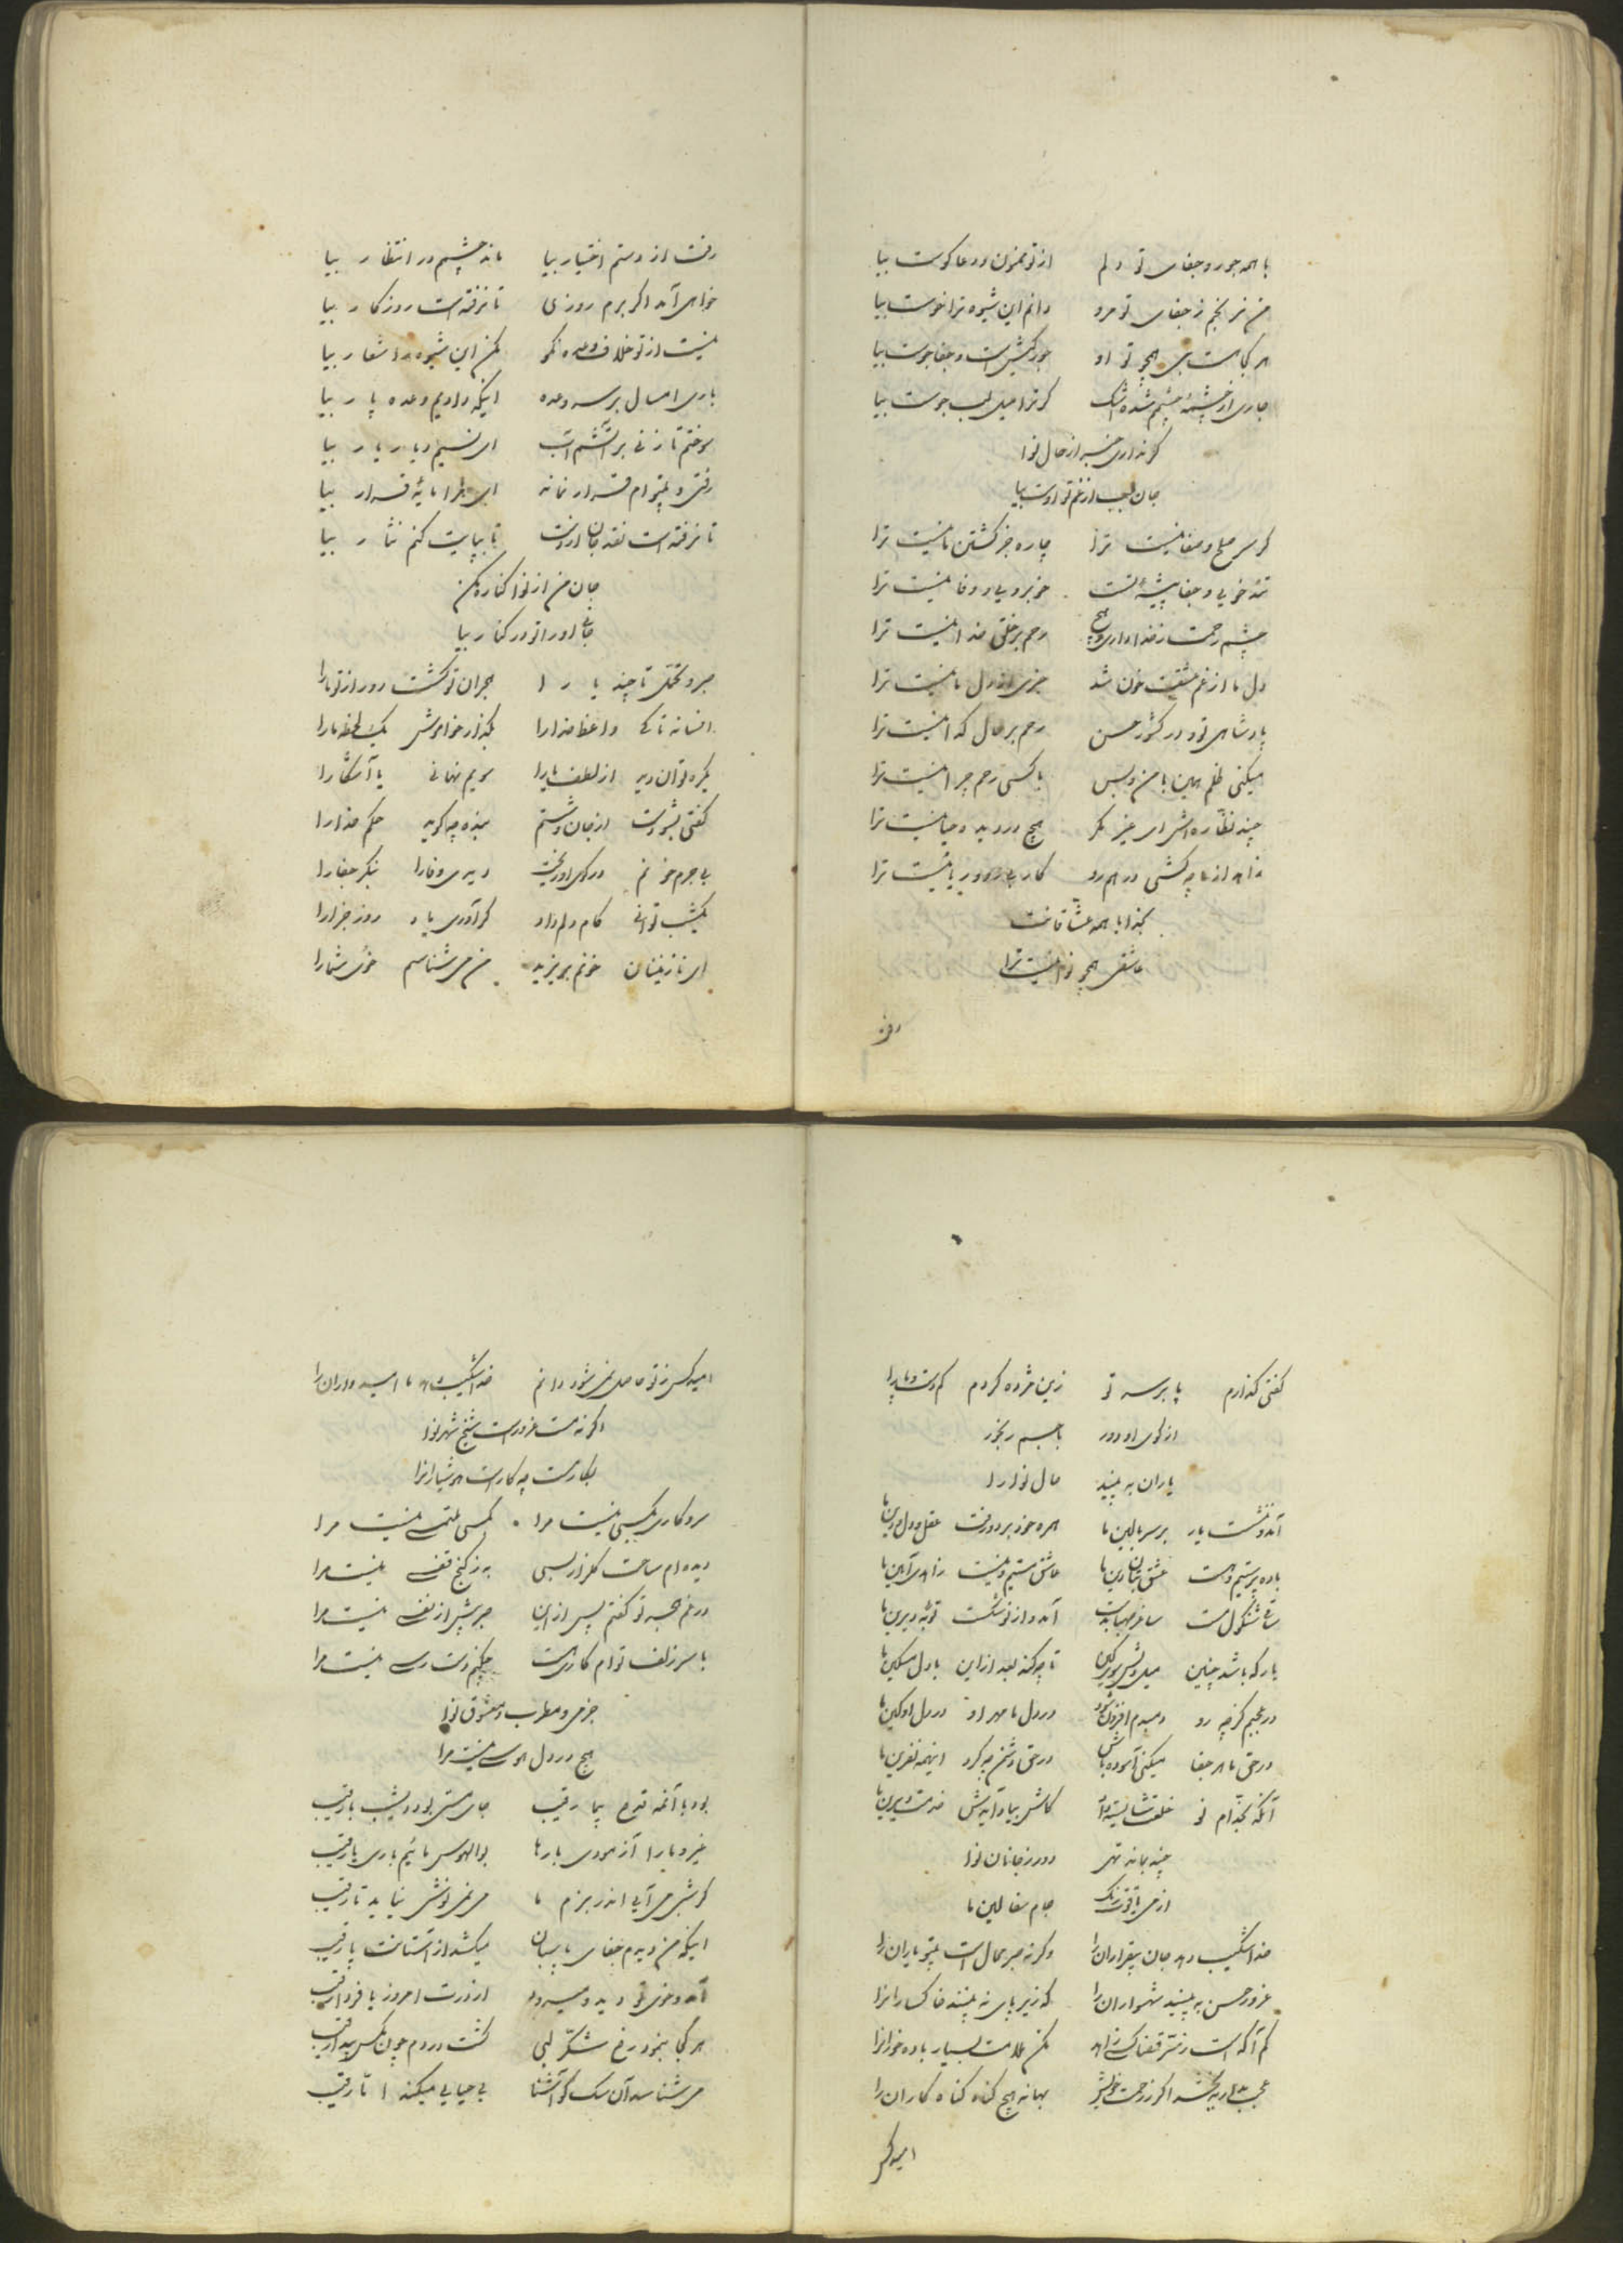 با همه جور و جفای تو دلم از تو ممنون و دعا گوست بیا
من نرنجم ز جفای تو مرو دانم این شیوه ترا خوست بیا
هر کجا هست بتی همچو تو او جورکیش است و جفا جوست بیا
جاری از چشمهٔ چشمم شده اشک گر ترا میل لب جوست بیا
گر نداری خبر از حال نوا
جان بلب از غم تو اوست بیا
گر سر صلح و صفا نیست ترا چاره جز کشتن ما نیست ترا
تندخویی و جفا پیشهٔ تست خوبرویی و وفا نیست ترا
چشم رحمت ز خدا داری و هیچ رحم بر خلق خدا نیست ترا
دل ما از غم عشقت خون شد خبری از دل ما نیست ترا
پادشاهی تو و در کشور حسن رحم بر حال گدا نیست ترا
میکنی ظلم همین با من و بس با کسی رحم چرا نیست ترا
چند نظاره‌اش ای غیر مگر هیچ در دیده حیا نیست ترا
زاهد از ما چه کشی در هم رو کار بی روی و ریا نیست ترا
بخدا با همه عشاقانت
عاشقی همچو نوا نیست ترا
رفت
رفت از دستم اختیار بیا ماند چشمم در انتظار بیا
خواهی آمد اگر برم روزی تا نرفته است روزگار بیا
نیست از تو خلاف وعده نکو مکن این شیوه را شعار بیا
باری امسال بر سر وعده اینکه دادیم وعده پار بیا
سوختم تا زنی بر آتشم آب ای نسیم دیار یار بیا
رفتی و بیتوام قرار نماند ای مرا مایهٔ قرار بیا
تا نرفته است نقد جان از دست تا بپایت کنم نثار بیا
جان من از نوا کناره مکن
جانب او را تو در کنار بیا
صبر و تحمل تا چند یارا هجران تو کشت دور از تو ما را
افسانه تا کی واعظ خدا را بگذار خاموش یک لحظه ما را
یکره توان دید از لطف یارا سویم نهانی یا آشکارا
گفتی بشو دست از جان و شستم بنده چه گوید حکم خدا را
بی جرم خونم در کوی او ریخت دیدی وفا را بنگر جفا را
یکشب توانی کام دلم داد گر آوری یاد روز جزا را
ای نازنینان خونم بریزید من می شناسم خوی شما را
گفتی گذارم پا بر سر تو زین مژده کردم گم دست و پا را
از کوی او دور با جسم رنجور
یاران به بینید حال نوا را
آمد و بنشست یار بر سر بالین ما همره خود برد و رفت عقل و دل و دین ما
باده پرستیم و هست عشق بتان دین ما عاشق مستیم و نیست زاهدی آیین ما
ساقی شنگول مست ساغر صهبا بدست آمد و از نو شکست توبهٔ دیرین ما
یار که باشد چنین میل دلش سوی کین تا چه کند بعد از این با دل مسکین ما
در عجبم کز چه رو دمبدم افزون شود در دل ما مهر او در دل او کین ما
در حق ما هر جفا میکنی آسوده باش در حق دشمن چه کرد اینهمه نفرین ما
چند بماند تهی دور ز جانان نوا
از می یاقوت رنگ جام سفالین ما
خدا شکیب دهد جان بیقراران را وگرنه صبر محال است بیتو یاران را
غرور حسن به بینید شهسواران را که زیر پای نه بینند خاکسارانرا
کم آگه است ز سر قضا کسی زاهد مکن ملامت بسیار باده خوارانرا
عجب مدار ببخشد اگر ز رحمت خویش بهانه هیچ گناه گناه کاران را
امید کس
امید کس ز تو حاصل نمی شود دانم خدا شکیب دهد ما امیدواران را
اگر نه مست غرور است شیخ شهر نوا
بکار مست چه کار است هوشیارانرا
سر و کاری بکسی نیست مرا بکسی ملتمسی نیست مرا
دیده ام ساحت گلزار بسی به ز کنج قفسی نیست مرا
در غم هجر تو گفتم پس از این صبر بیش از نفسی نیست مرا
با سر زلف توام کاری هست چکنم دست رسی نیست مرا
جز می و مطرب و معشوق نوا
هیچ در دل هوسی نیست مرا
بود با آنمه قدح پیما رقیب جای من بود دیشب با رقیب
غیر و ما را آزمودی بارها بوالهوس مائیم باری یا رقیب
گر شبی می آیی اندر بزم ما می نمی نوش نیاید تا رقیب
اینکه من دیدم جفای پاسبان میکشد از آستانت پا رقیب
آمد و خوی تو دید و میرود از درت امروز یا فردا رقیب
هر کجا بنمود رخ شکر لبی گشت در دم چون مگس پیدا رقیب
می شناسد آن سگ کو آشنا بی حیایی میکند اما رقیب